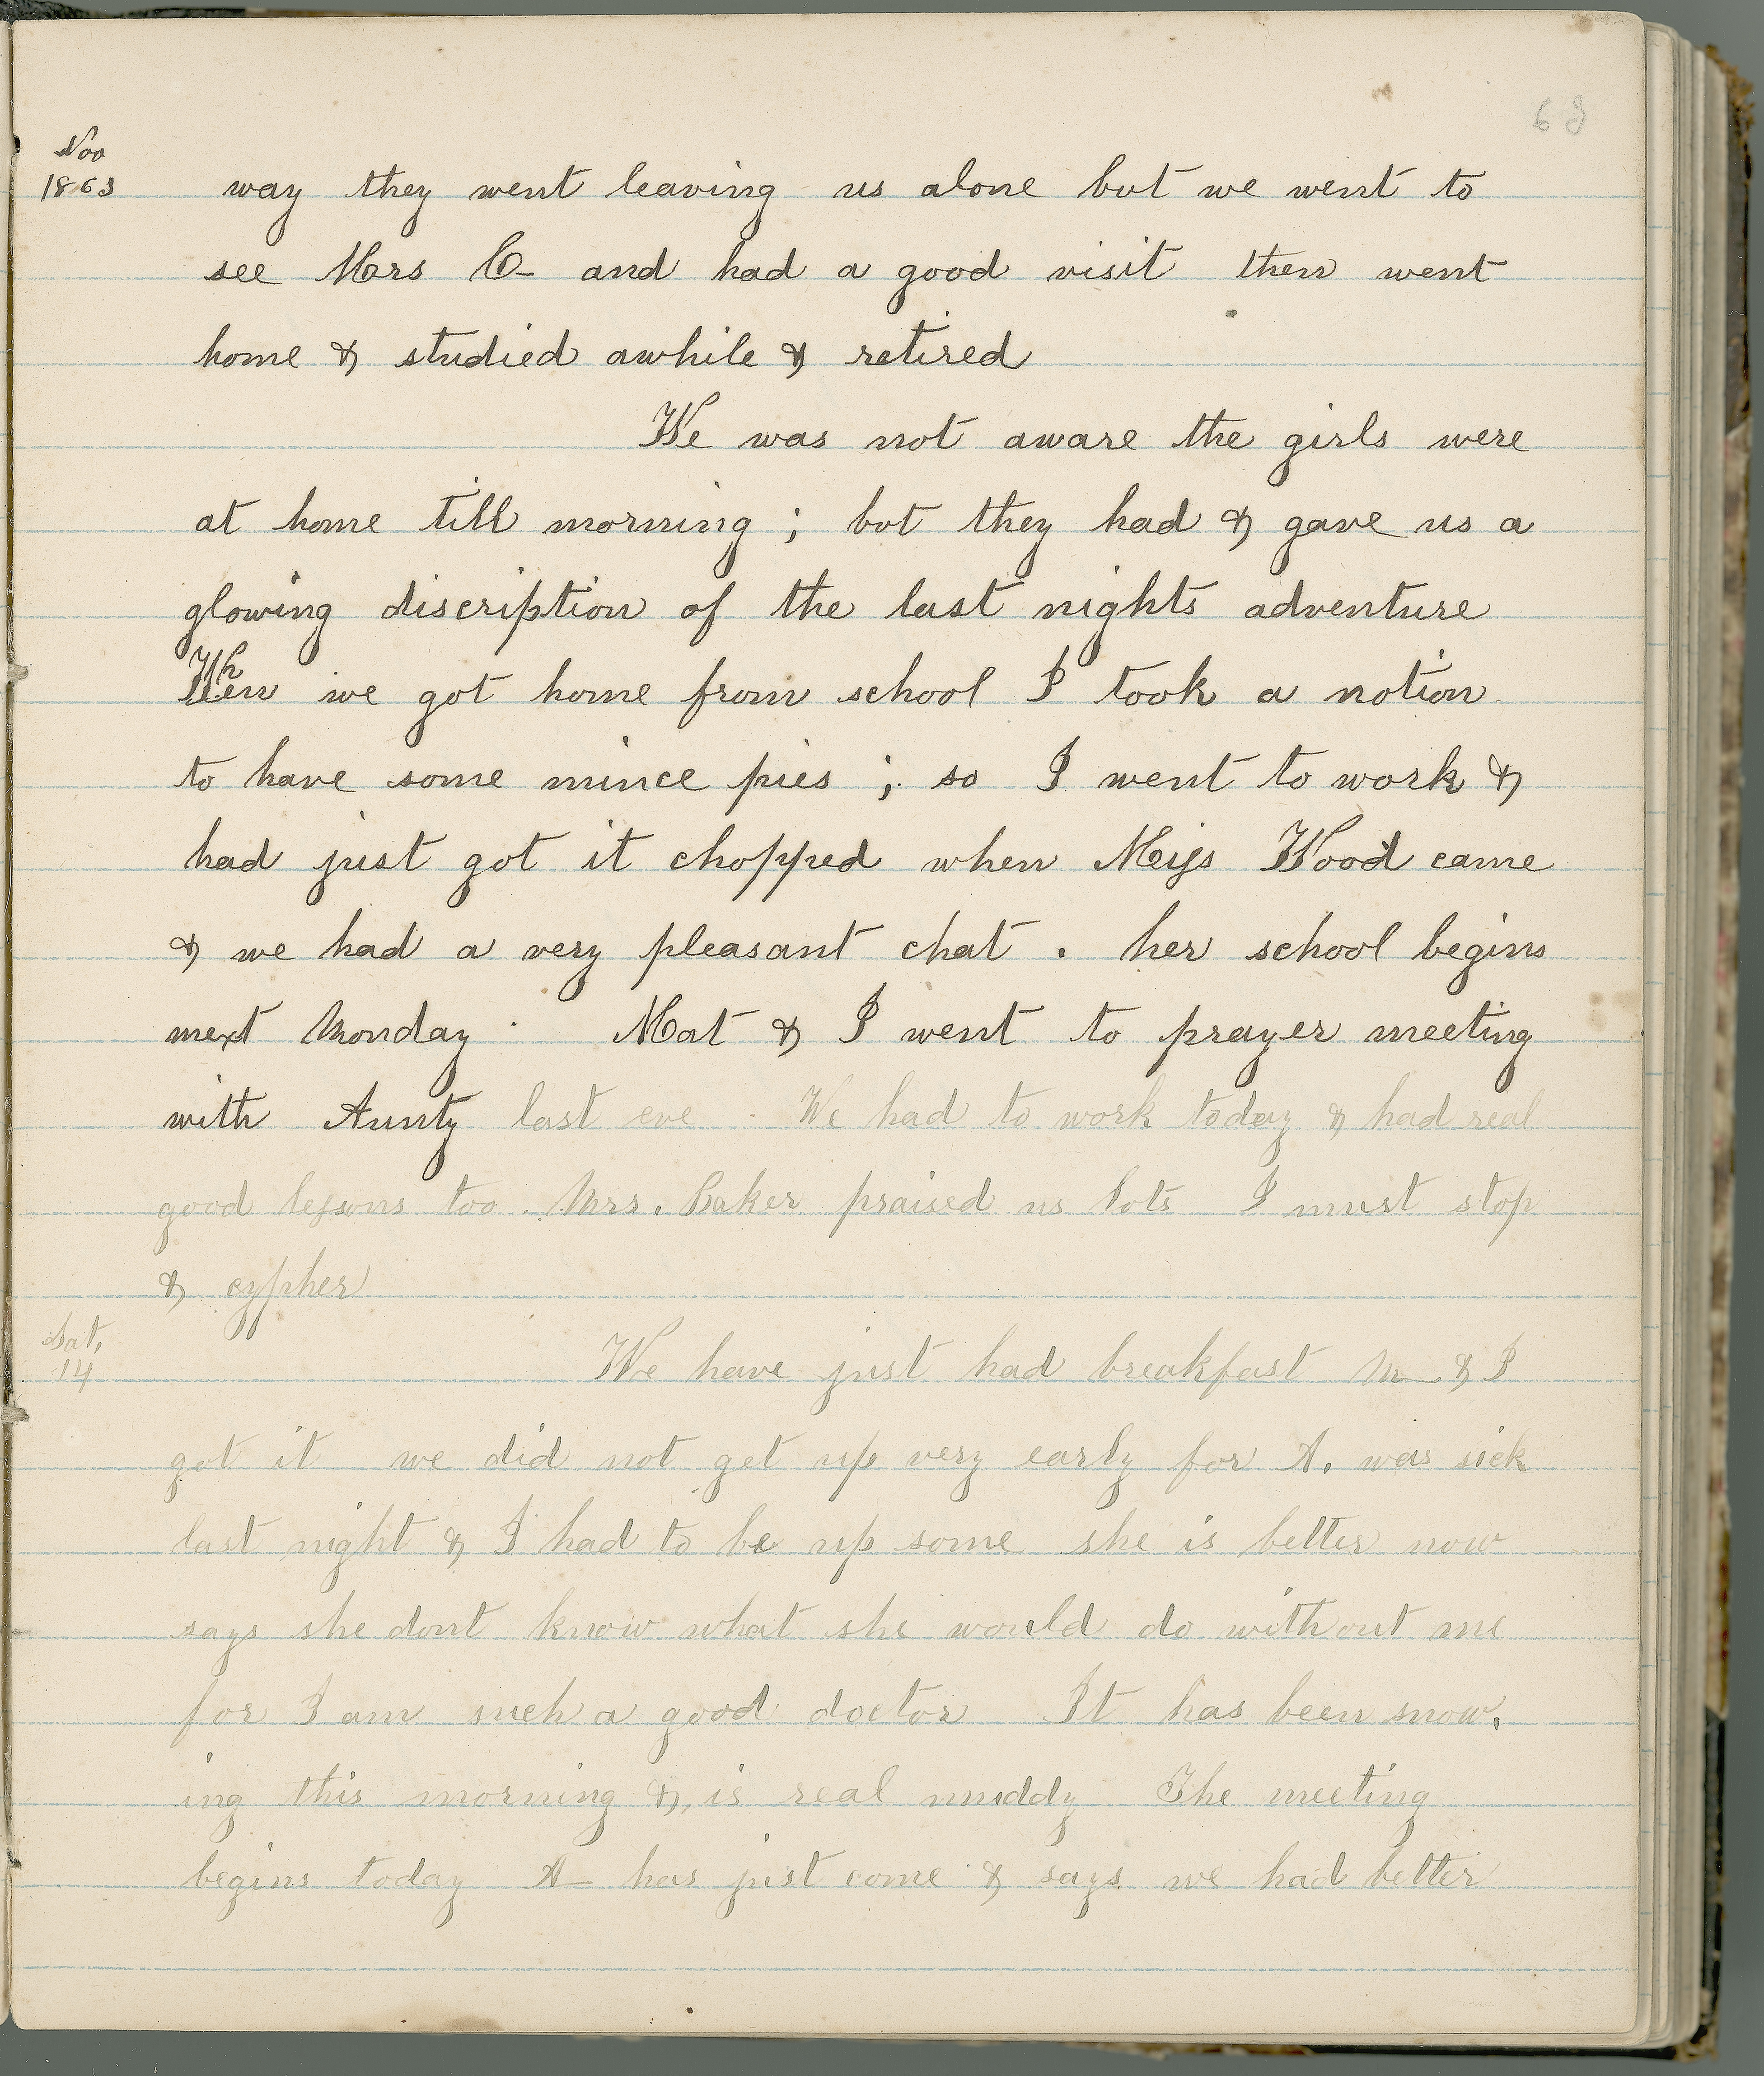 63
Nov
1863
way they went leaving us alone but we went to
see Mrs C- and had a good visit then went
home & studied awhile & retired
We was not aware the girls were
at home till morning ; but they had & gave us a
glowing discription of the last nights adventure
When we got home from school I took a notion
to have some mince pies ; so I went to work &
had just got it chopped when Miss Wood came
& we had a very pleasant chat . her school begins
next Monday . Mat & I went to prayer meeting
with Aunty last eve . We had to work today & had real
good lessons too . Mrs. Baker praised us lots I must stop
& cypher
Sat,
14
We have just had breakfast M- & I
got it we did not get up very early for A. was sick
last night & I had to be up some she is better now
says she dont know what she would do without me
for I am such a good doctor It has been snow,
ing this morning & is real muddy The meeting
begins today A- has just come & says we had better